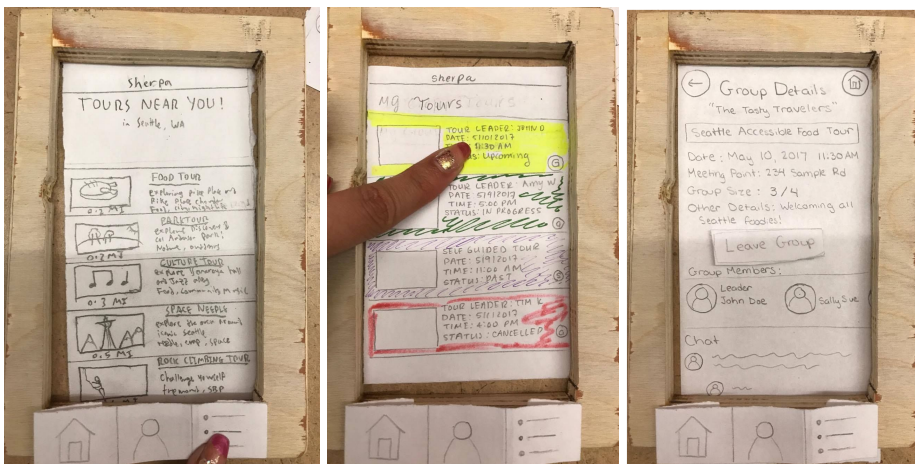 sherpa
TOURS NEAR YOU!
in Seattle, WA
FOOD TOUR
Exploring Pike Place and
Food,
0.2 MI
PARK TOUR
explore Discover
0.2 MI
CULTURE TOUR
explore
and Jazz
Food, Community Music
0.3 MI
SPACE NEEDLE
explore the area around
iconic Seattle
space
0.5 MI
ROCK CLIMBING TOUR
Challenge yourself
sherpa
My Tours
TOUR LEADER: JOHN D
DATE: 5/10/2017
11:30 AM
Upcoming
G
TOUR LEADER: Amy W
DATE: 5/9/2017
TIME: 5:00 PM
STATUS: IN PROGRESS
G
SELF GUIDED TOUR
DATE: 5/9/2017
TIME: 11:00 AM
STATUS: PAST
S
TOUR LEADER: TIM K
DATE: 5/1/2017
TIME: 4:00 PM
STATUS: CANCELLED
G
Group Details
"The Tasty Travelers"
Seattle Accessible Food Tour
Date: May 10, 2017 11:30 AM
Meeting Point: 234 Sample Rd
Group Size: 3/4
Other Details: Welcoming all
Seattle Foodies!
Leave Group
Group Members:
Leader
John Doe
Sally Sue
Chat